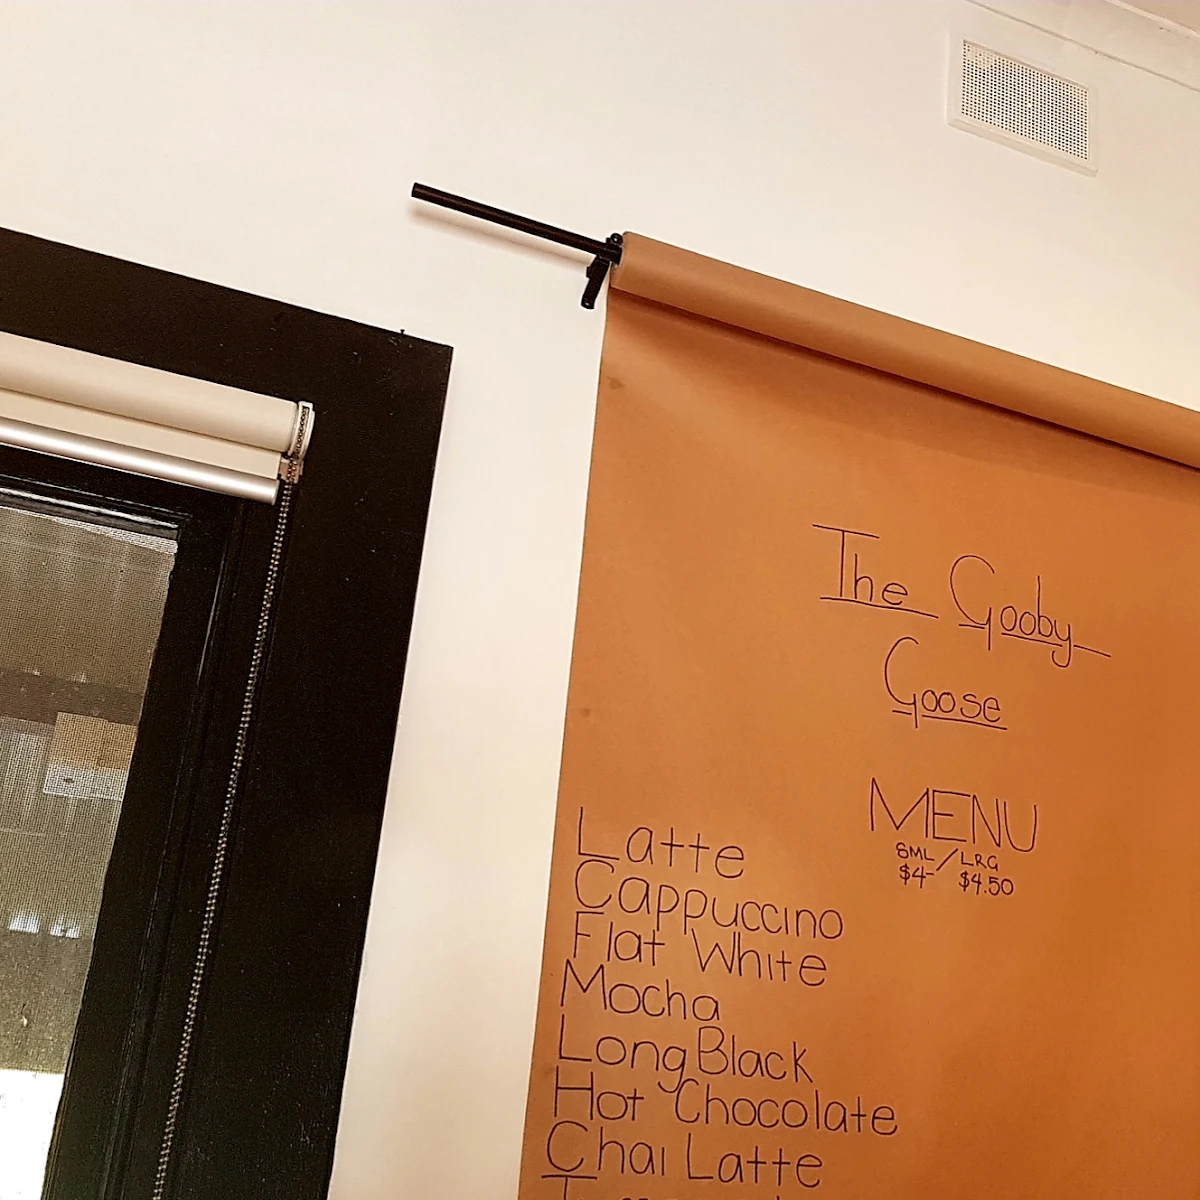 The Gooby
Goose
MENU
SML/LRG
$4- $4.50
Latte
Cappuccino
Flat White
Mocha
Long Black
Hot Chocolate
Chai Latte